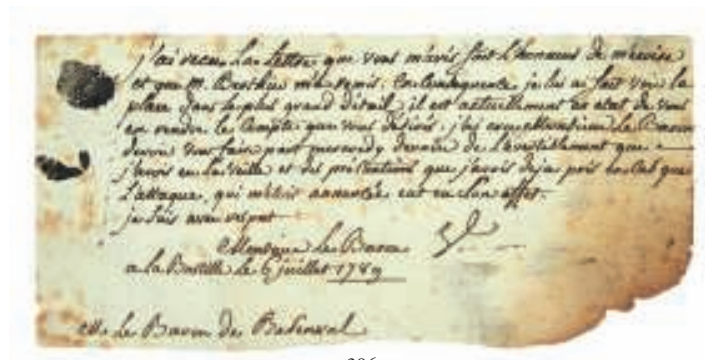 j'ai recu La Lettre que vous m'avés fait L'honneur de m'ecrire
et que M. Berthier m'a remis. En Consequence je lui ai fait voir la
place dans le plus grand détail, il est actuellement en etat de vous
en rendre le Compte que vous désirés. j'ai Monsieur Le Baron
devoir vous faire part de L'avertissement que
j'avois eu La veille et des précautions que j'avois deja pris en Cas que
L'attaque, qui m'étoit annoncée eut eu Son effet.
je suis avec respect
Monsieur Le Baron
a la Bastille Le 6 juillet 1789
M. Le Baron de Besenval